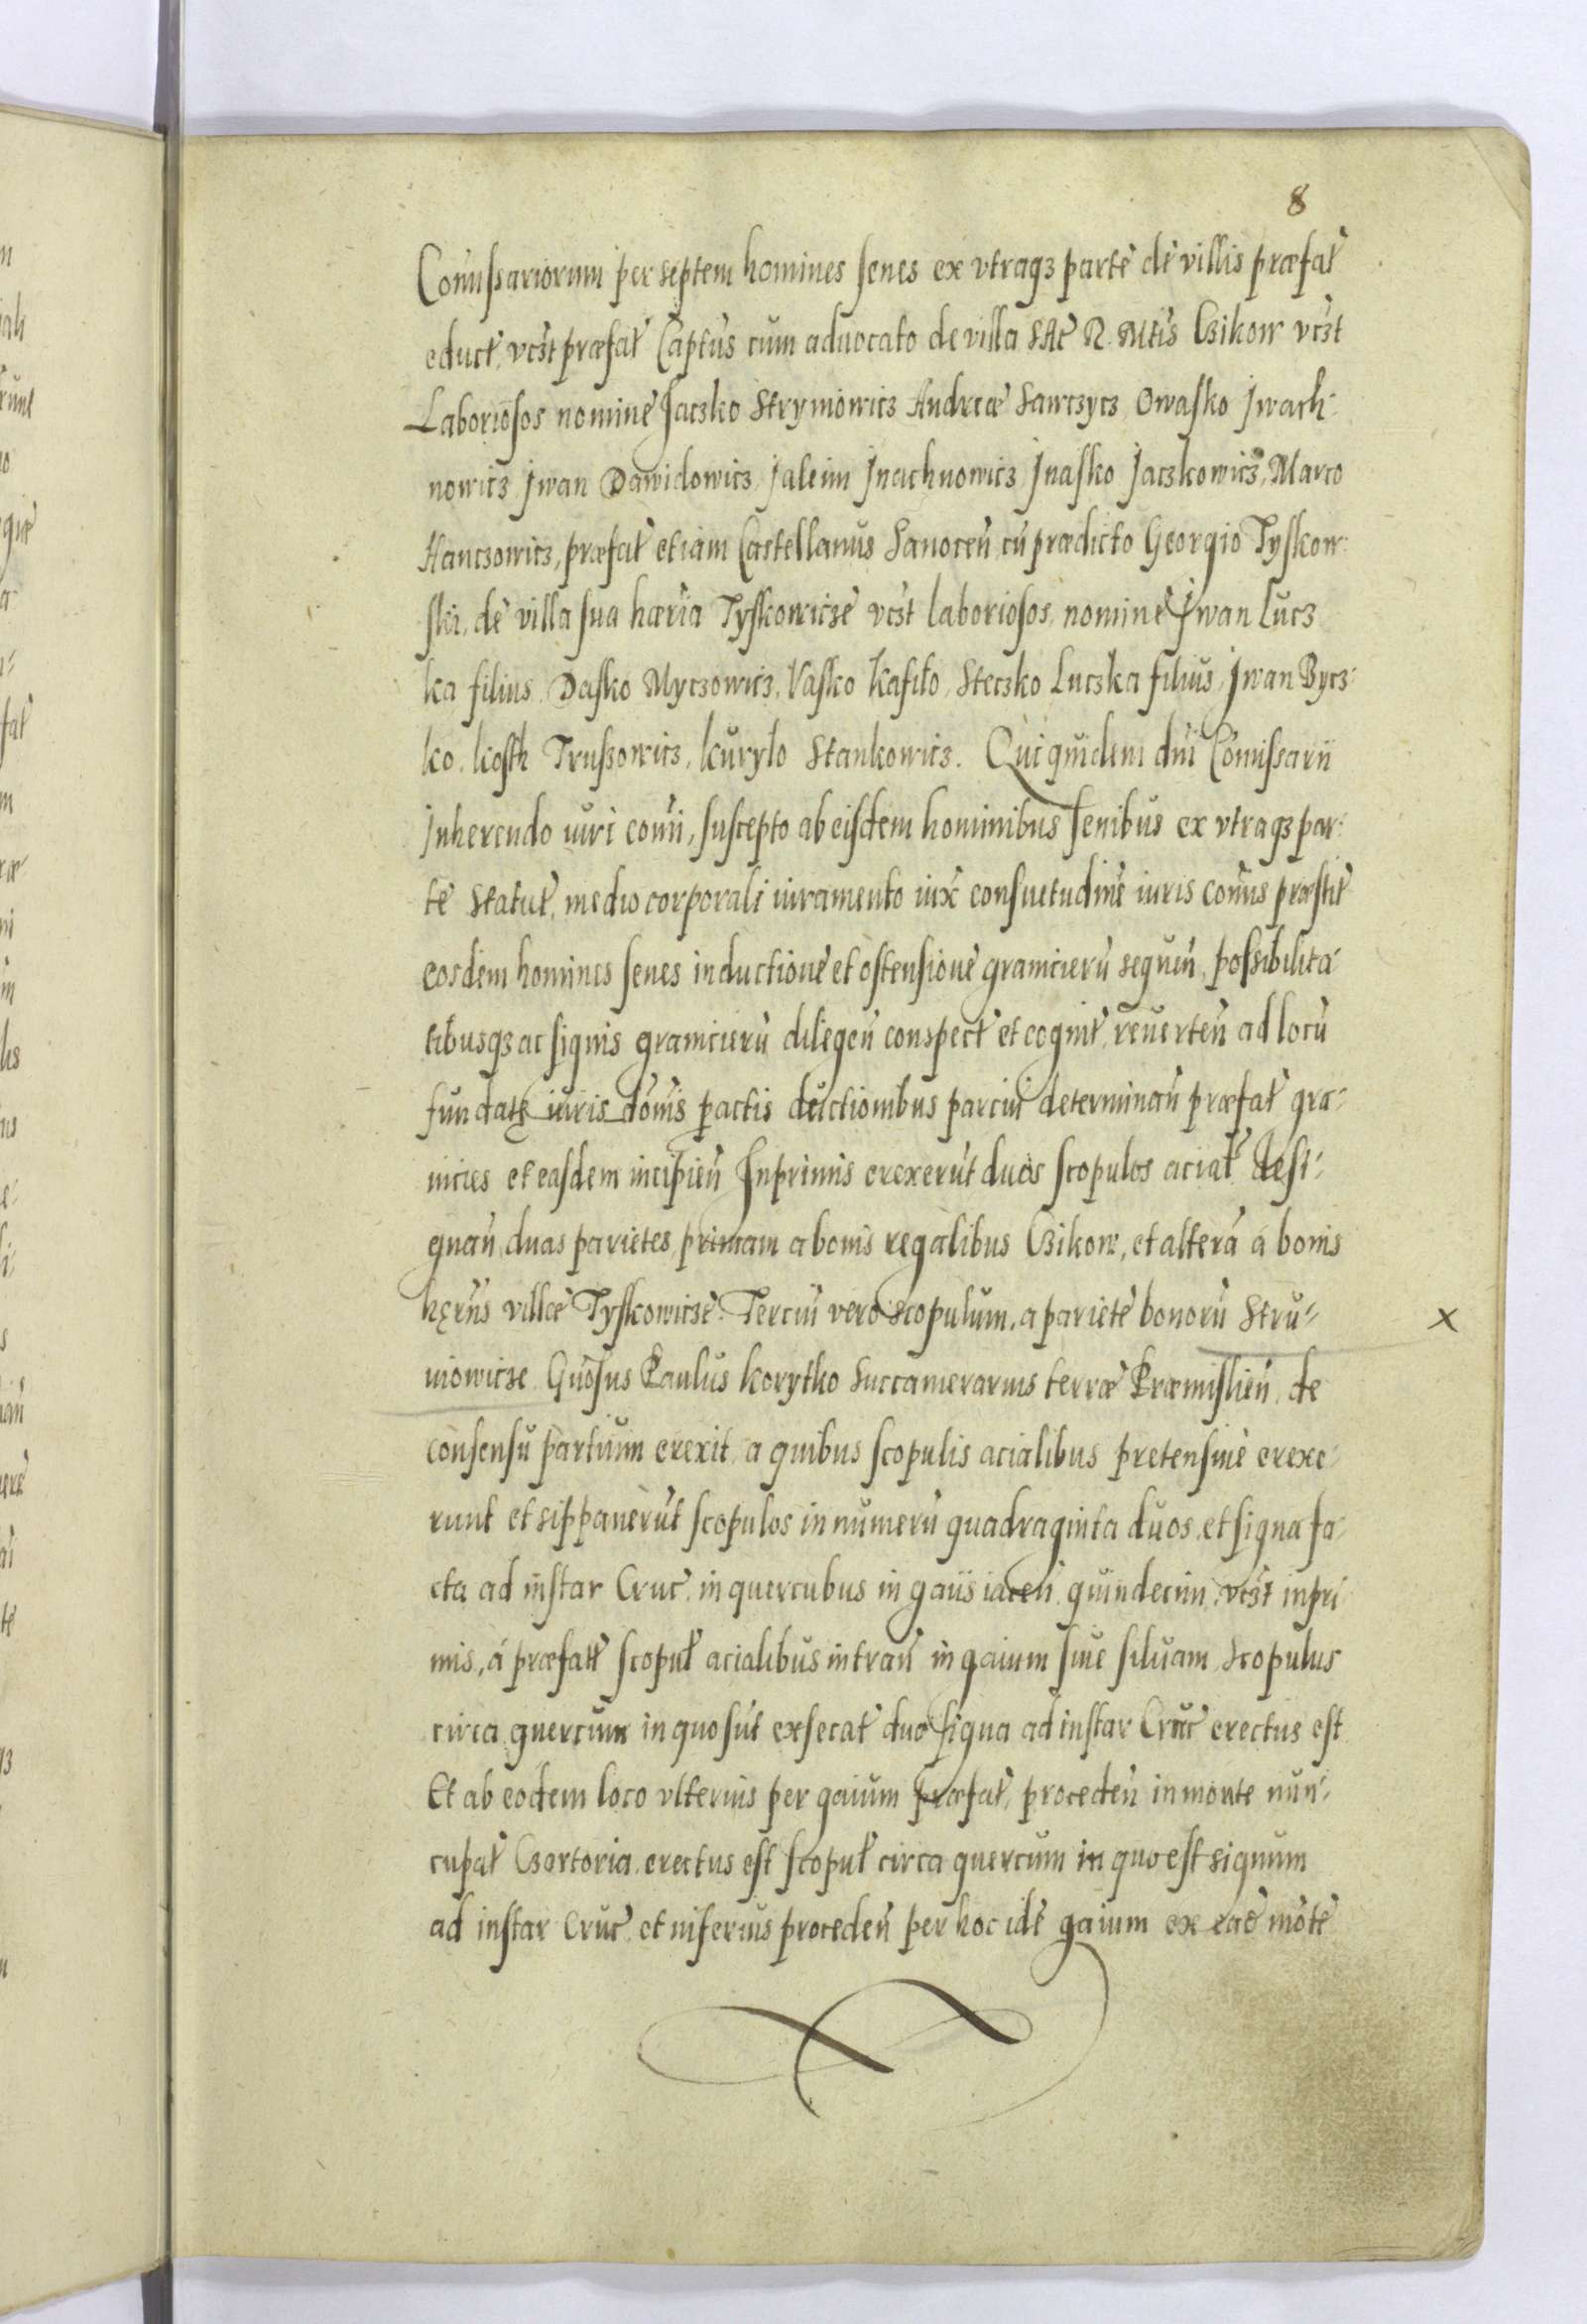 8
Com̃issariorum per septem homines senes ex vtraqꝫ parte de villis præfat̃
educt̃, vcꝫt præfat̃ Captũs cum aduocato de villa SAC̃ R. Mt̃is Czikow vcꝫt
Laboriosos nomine Jaczko Strÿniowicz Andreæ Sawczycz, Owasko Jwach-
nowicz Jwan Dawidowicz, Jaleim Jnachnowicz Jnasko Jaczkowicz, Marco
Hanczowicz, præfat̃ etiam Castellanus Sanoceñ cũ prædicto Georgio Tyskow-
ski, de villa sua hæria Tyskowicze vcꝫt laboriosos, nomine Jwan Lucz
ka filius Dasko Myczowicz, Vasko Kafilo, Steczko Luczka filius, Jwan Bycz-
ko, Kosth Trussowicz, Kuryło Stankowicz. Qui quidem dñi Com̃issarii
Jnherendo iuri com̃i, suscepto ab eisdem hominibus senibus ex vtraqꝫ par-
te statut̃, medio corporali iuramento iux̃ consuetudine iuris com̃is præstit̃
eosdem homines senes inductione et ostensione granicierũ sequeñ, possibilita-
tibusqꝫ ac signis granicierũ diligeñ conspect̃ et cognit̃, reuerteñ ad locũ
fundatę iuris dõnis pactis ductionibus parciũ determinañ præfat̃ gra-
nicies et easdem incipieñ Inprimis erexerũt duos scopulos acial̃ desi-
gnañ duas parietes, primam a bonis regalibus Czikow, et alterã a bonis
hęrñs villæ Tyskowicze. Terciũ vero scopulum, a pariete bonorũ Stru- x
niowicze Gñosus Paulus Korytko Succamerarius terræ Præmislieñ, de
consensu partium erexit, a quibus scopulis acialibus pretensiue erexe-
runt et sippauerũt scopulos in numerũ quadraginta duos, et signa fa-
cta ad instar Cruc̃, in quercubus in gaiis iaceñ quindecim, vcꝫt inpri
mis, à præfatt̃ scopul̃ acialibus intrañ in gaium siue siluam, Scopulus
circa quercum in quo sũt exsecat̃ duo signa ad instar Cruc̃ erectus est
Et ab eodem loco vlterius per gaium præfat̃, procedeñ in monte nun-
cupat̃ Czortoria, erectus est scopul̃ circa quercum in quo est signum
ad instar Cruc̃, et niferius procedeñ per hoc idẽ gaium ex eac̃ mõte